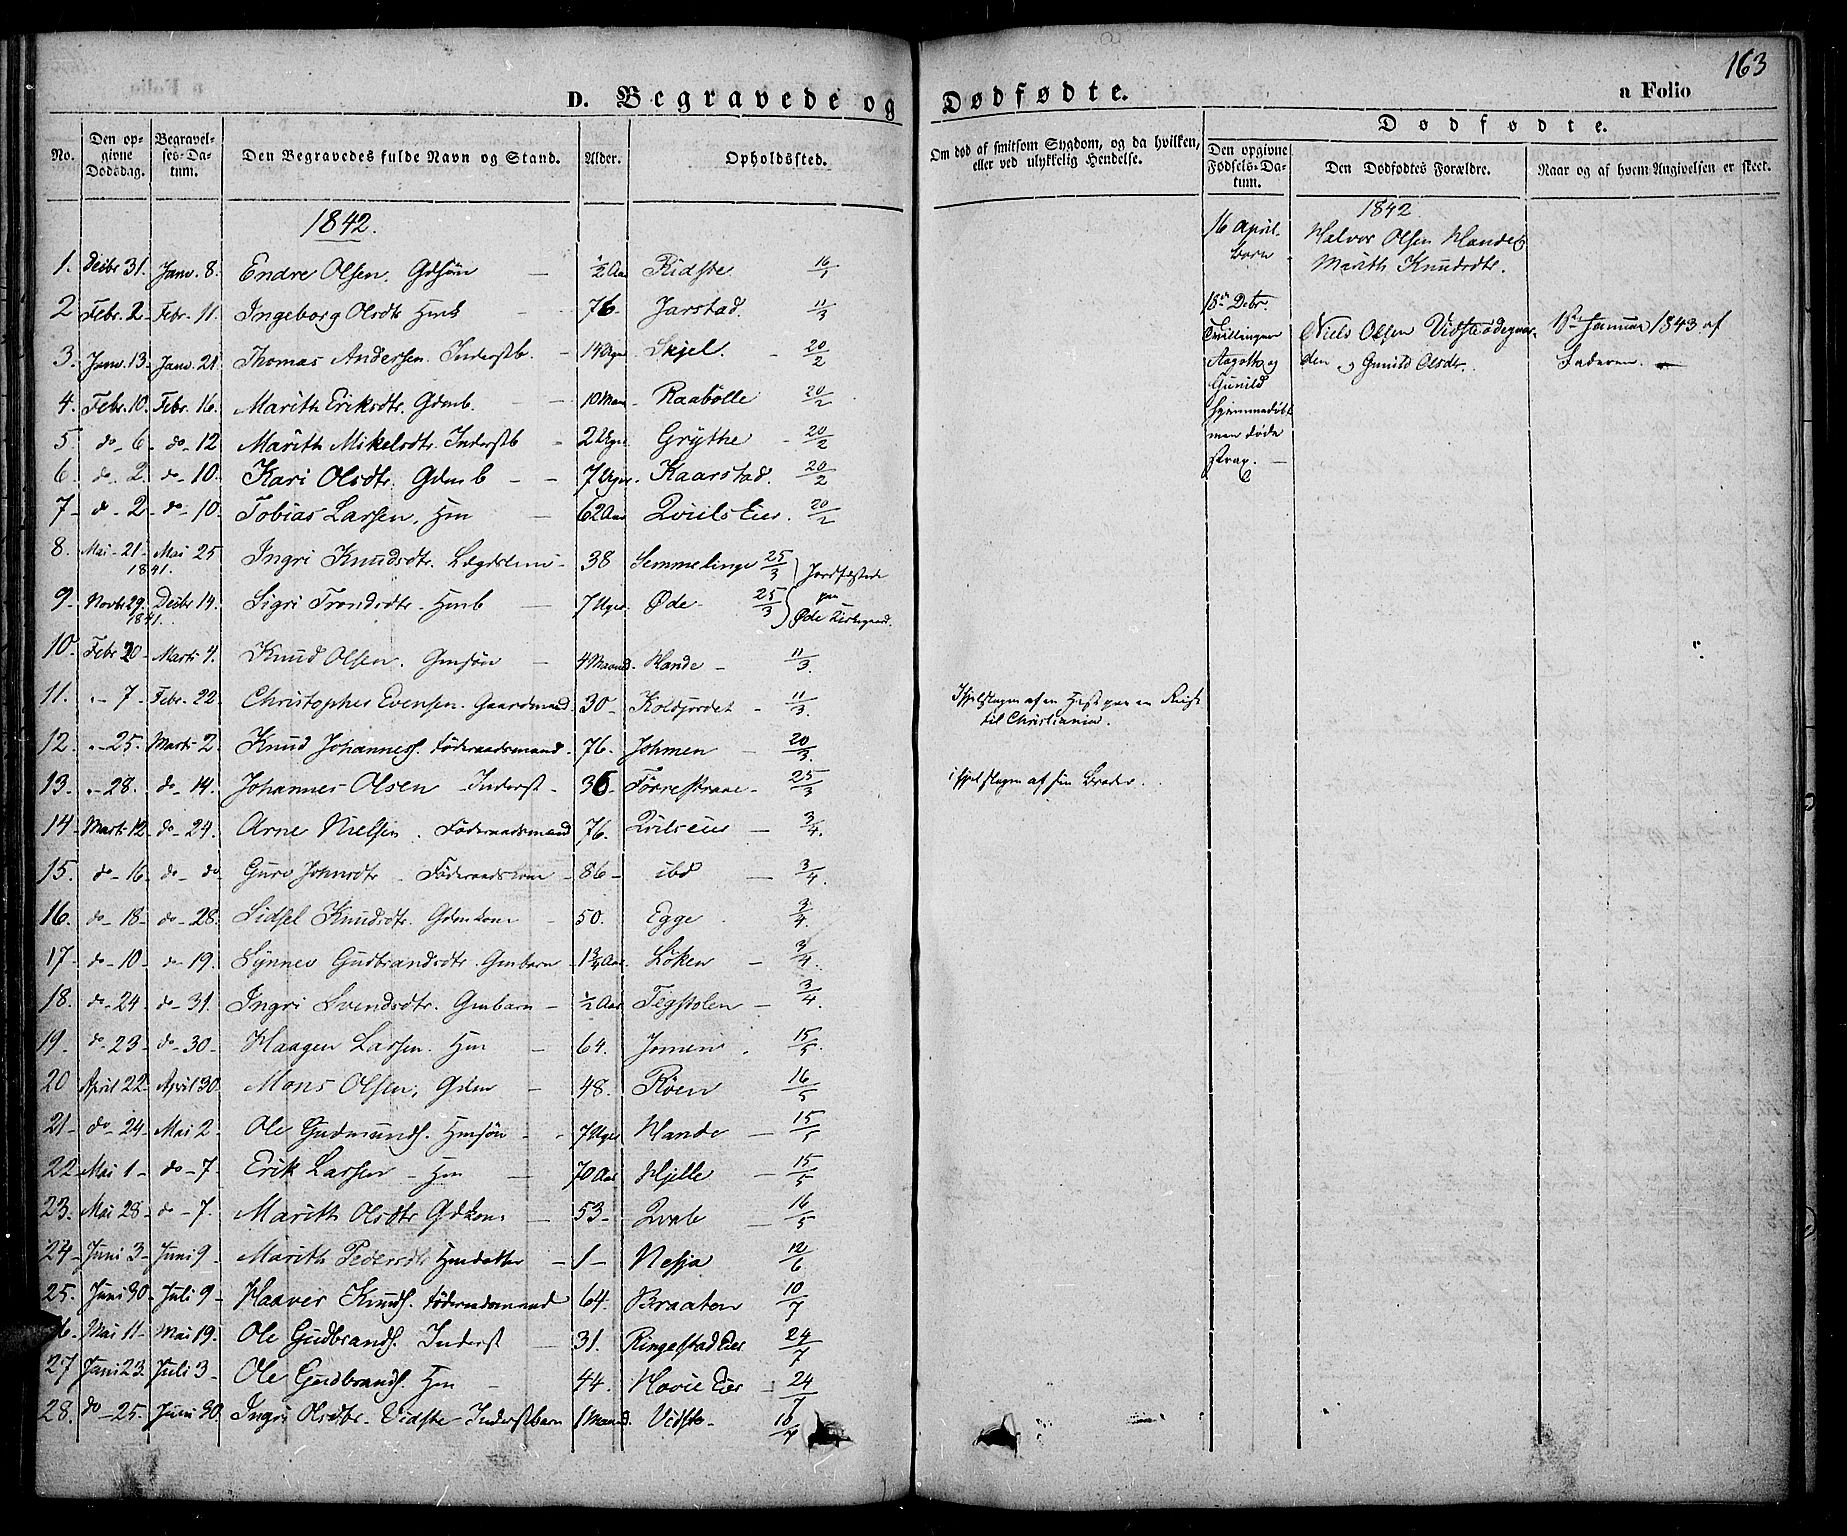 163
D. Begravede og Dødfødte.
a Folio
No.
Den opgivne Dødsdag.
Begravelses-Datum.
Den Begravedes fulde Navn og Stand.
Alder.
Opholdssted.
Om død af smitsom Sygdom, og da hvilken, eller ved ulykkelig Hendelse.
Dødfødte.
Den opgivne Fødsels-Datum.
Den Dødfødtes Forældre.
Naar og af hvem Angivelsen er skeet.
1842.
1. Decbr 31. Janv. 8. Endre Olsen. Gdsøn — ½ Aar Ridste 16/1
2 Febr. 2 - Febr. 11. Ingeborg Olsdtr 76 - Jarstad. 11/3
3. Janv. 13. Janv. 21. Thomas Andersen. Inderstb. - 14 Uger Skjel. - 20/2
4. Febr. 10. Febr. 16. Marith Eriksdtr. Gdmb. 10 Maan - Raabølle 20/2
5 do - 6 - do - 12 Marith Mikelsdtr. Inderstb - 2 Uger Grythe - 20/2
6. do - 2 do - 10. Kari Olsdtr. Gdmb - - 7 Uger. Kaarstad. 20/2
7 - do - 2 - do - 10. Tobias Larsen. Hm — 62 Aar Qviels Eier. 20/2
8. Mai - 21 - Mai 25 Ingri Knudsdtr. Lægdslem - 38 Semmelinge 25/3 Jordfæstede
1841.
9. Novbr 29. Decbr 14. Sigri Trondsdtr. Hmb — 7 Uger Øde - 25/3 paa Øde Kirkegaard.
1841.
10. Febr 20 - Marts 4. Knud Olsen. Gmsøn — 4 Maaned. Hande - 11/3
11. " - 7 - Febr. 22 Christopher Evensen. Gaardmand. 30 - Koldjordet - 11/3. Ihjelslagen af en Hest paa en Reise
til Christiania.
12. " - 25. Marts 2. Knud Johannesf. Føderaadsmand. 76. Johmen - 20/3.
13. " - 28. do - 14. Johannes Olsen Inderst - 36 - Førrestrane - 25/3 ihjelslagen af sin Broder.
14. Marts 12 do - 24. Arne Nielsen. Føderaadsmand 76. Qvilseier — 3/4.
15. do - 16 do - do Guro Johnsdtr - Føderaadskone - 86 - ibd — 3/4.
16. do - 18 - do - 28. Sidsel Knudsdtr. Gdmkone - 50. Egge. 3/4.
17 - do - 10 - do - 19. Synnev Gudbrandsdtr. Gmbarn - 1¾ Aar. Løken — 3/4.
18. do - 24 do - 31. Ingri Svendsdtr. Gmbarn - ½ Aar Tegstolen — 3/4.
19. do - 23 - do - 30. Haagen Larsen. Hm — 64. Jomen. 15/5.
20 April 22 - April 30. Mons Olsen, Gdm — 48. Røen 16/5
21 - do - 24 Mai 2 - Ole Gudmundf. Hmsøn - - 7 Uger Hande — 15/5
22 - Mai 1 - do - 7 - Erik Larsen - Hm — 70 Aar Hjelle — 15/5
23. Mai 28 - do - 7. Marith Olsdtr Gdkone — 53 - Qvale — 16/5
24 - Juni 3 - Juni 9 - Marith Pedersdtr Hmdatter - 1 - Nesja 12/6
25. Juni 30 - Juli 9 - Haaver Knudf. Føderaadsmand 64. Braaten 10/7
26. Mai 11 - Mai 19. Ole Gudbrandf. Inderst — 31. Ringestad Eier 24/7
27 Juni 23. Juli 3 - Ole Gudbrandf. Hm - 44. Hovie Eier 24/7
28. do - 25. Juni 30. Ingri Olsdtr. Vidste Inderstbarn 1 Maaned. Vidste - 10/7
1842.
16 April. Barn
Halvor Olsen Hande &
Marith Knudsdtr.
18de Decbr. Tvillinger Aagoth og Gunild hjemmedøbt men døde strax. —
Niels Olsen Vidsteødegaarden og Gunild Olsdtr.
1ste Januar 1843 af Faderen. —